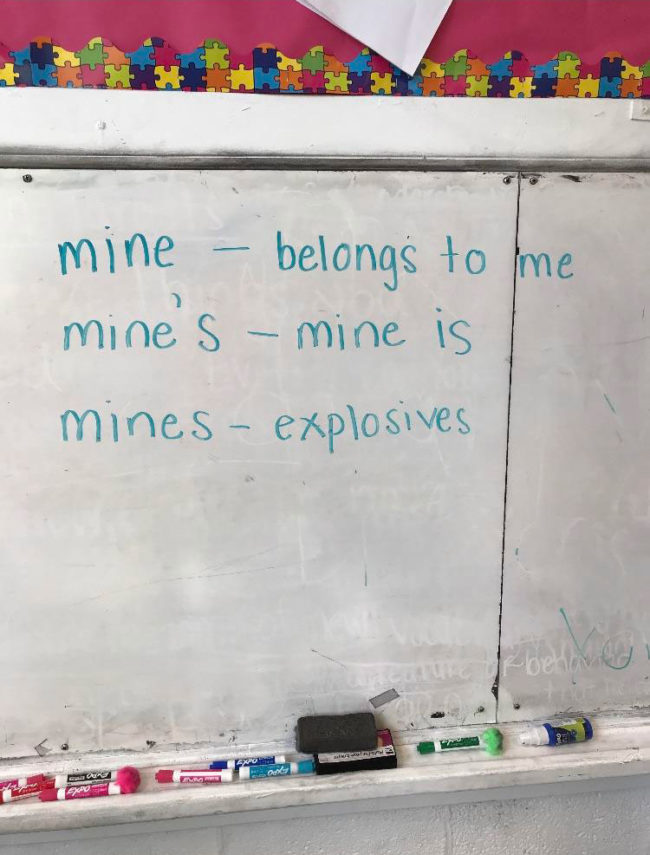 mine – belongs to me
mine's – mine is
mines – explosives
EXPO
EXPO